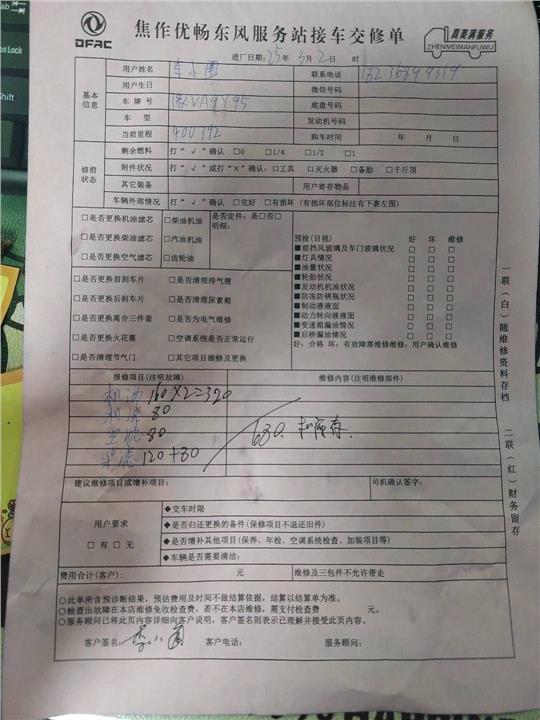 DFAC
焦作优畅东风服务站接车交修单
真美满服务
ZHENMEIMANFUWU
进厂日期:25年3月2日 时
用户姓名 联系电话
基本信息
用户生日 微信号码
车牌号 VA9Y95 底盘号码
车型 发动机号码
当前里程 400392 购车时间 年 月 日
修前状态
剩余燃料 打“√”确认 □0 □1/4 □1/2 □1
附件状况 打“√”或打“×”确认:□工具 □灭火器 □备胎 □千斤顶
其它装备 用户寄存物品
车辆外部情况 打“√”确认 □完好 □有损坏(有损坏部位标注有下表左图)
□是否更换机油滤芯 □柴油机油 是否定件:是□否□
明细:
□是否更换柴油滤芯 □汽油机油
□是否更换空气滤芯 □齿轮油
预检(目视) 好 坏 维修
■前挡风玻璃及车门玻璃状况 □ □ □
■灯具情况 □ □ □
■油量状况 □ □ □
■轮胎状况 □ □ □
■发动机机油状况 □ □ □
■防冻防锈瓶状况 □ □ □
■制动液液面 □ □ □
■动力转向液液面 □ □ □
■变速箱漏油情况 □ □ □
■后桥漏油情况 □ □ □
好:合格 坏:有故障需维修维修:用户确认维修
□是否更换前刹车片 □是否清理排气筒
□是否更换后刹车片 □是否清理尿素箱
□是否更换离合三件套 □是否为电气维修
□是否更换火花塞 □空调系统是否正常运行
□是否清理节气门 □其它项目维修及更换
报修项目(注明故障) 维修内容(注明维修部件)
机油 160×2=320
机滤 80
空滤 80
柴滤 120+80
680.
建议维修项目或增补项目: 司机确认签字:
用户要求
□有 □无
◆交车时限
◆是否归还更换的备件(保修项目不退还旧件)
◆是否增补其他项目(保养、年检、空调系统检查、加装项目等)
◆车辆是否需要清洁:
费用合计(客户): 元 维修及三包件不允许带走
○此单所含预诊断结果,预估费用及时间不做结算依据,结算以结算单为准。
○检查出故障在本店维修免收检查费,若不在本店维修,需支付检查费 元。
○服务顾问已将此页内容详细向客户说明,客户签名则表示已理解并接受此页内容。
客户签名: 李小圈 客户电话: 服务顾问:
一联(白)随维修资料存档
二联(红)财务留存